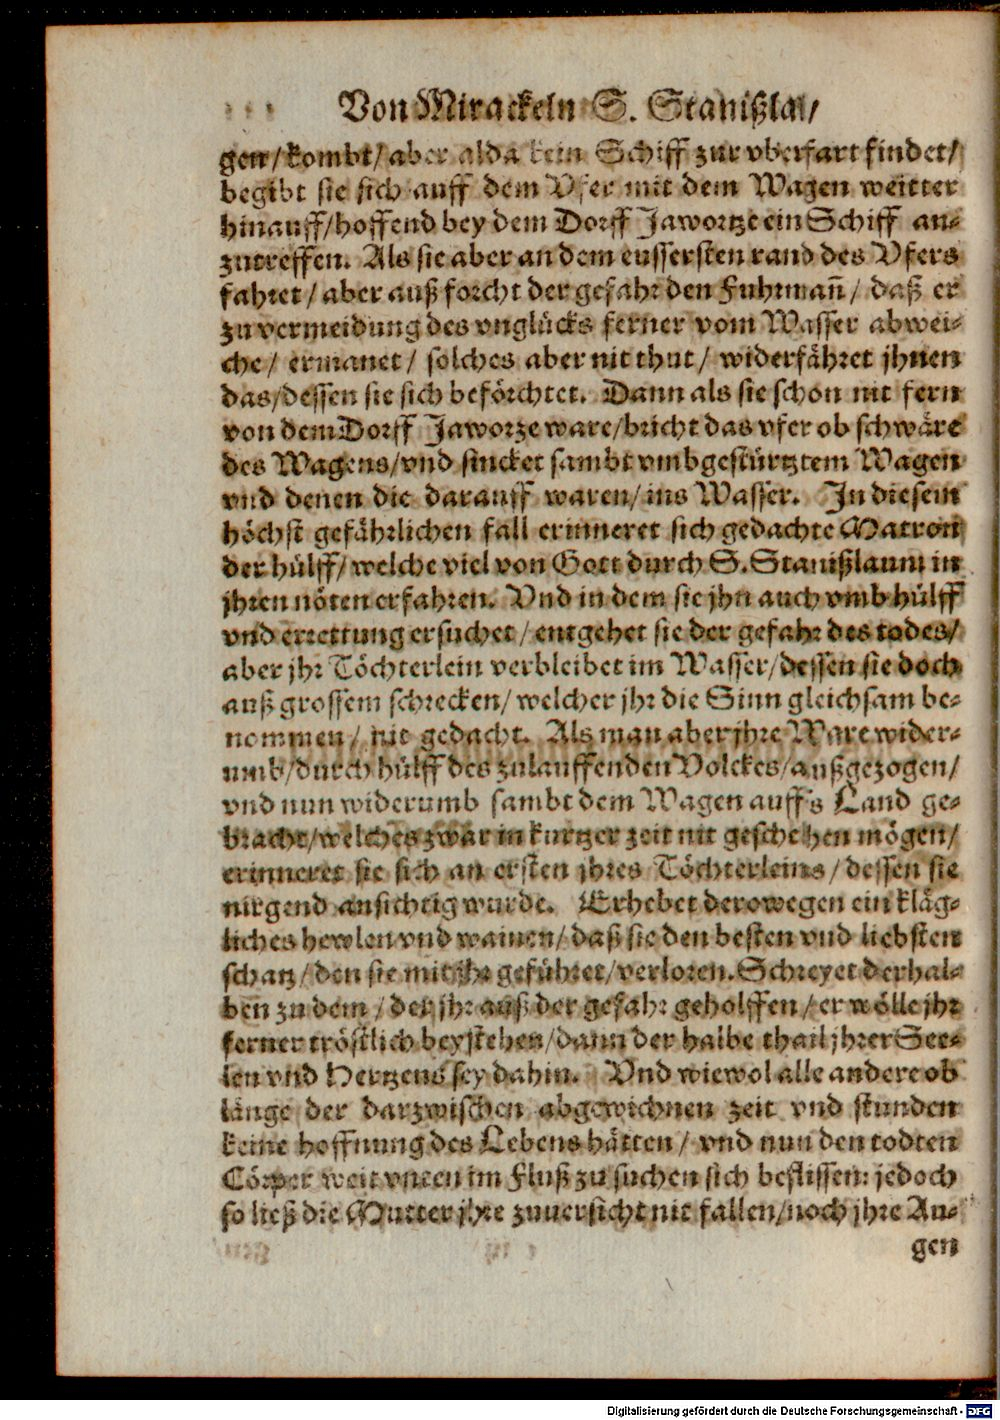 Von Mirackeln S. Stanißlai/
gen/kombt/aber alda kein Schiff zur vberfart findet/
begibt sie sich auff dem Vfer mit dem Wagen weitter
hinauff/hoffend bey dem Dorff Jawortze ein Schiff an-
zutreffen. Als sie aber an dem eussersten rand des Vfers
fahret/ aber auß forcht der gefahr den Fuhrmañ/ daß er
zu vermeidung des vnglücks ferner vom Wasser abwei-
che/ ermanet/ solches aber nit thut/ widerfähret jhnen
das/dessen sie sich beförchtet. Dann als sie schon nit fern
von dem Dorff Jaworze ware/bricht das vfer ob schwäre
des Wagens/vnd sincket sambt vmbgestürtztem Wagen
vnd denen die darauff waren/ins Wasser. In diesem
höchst gefährlichen fall erinneret sich gedachte Matron
der hülff/welche viel von Gott durch S. Stanißlaum in
jhren nöten erfahren. Vnd in dem sie jhn auch vmb hülff
vnd errettung ersuchet/entgehet sie der gefahr des todes/
aber jhr Töchterlein verbleibet im Wasser/dessen sie doch
auß grossem schrecken/welcher jhr die Sinn gleichsam be-
nommen/ nit gedacht. Als man aber jhre Ware wider-
umb/durch hülff des zulauffenden Volckes/außgezogen/
vnd nun widerumb sambt dem Wagen auff's Land ge-
bracht/welches zwar in kurtzer zeit nit geschehen mögen/
erinneret sie sich an ersten jhres Töchterleins/dessen sie
nirgend ansichtig wurde. Erhebet derowegen ein kläg-
liches hewlen vnd wainen/daß sie den besten vnd liebsten
schatz/den sie mit jhr geführet/verloren. Schreyet derhal-
ben zu dem/der jhr auß der gefahr geholffen/er wölle jhr
ferner tröstlich beystehen/dann der halbe thail jhrer See-
len vnd Hertzens sey dahin. Vnd wiewol alle andere ob
länge der darzwischen abgewichnen zeit vnd stunden
keine hoffnung des Lebens hätten/ vnd nun den todten
Cörper weit vnten im Fluß zu suchen sich beflissen: jedoch
so ließ die Mutter jhre zuuersicht nit fallen/noch jhre Au-
gen
Digitalisierung gefördert durch die Deutsche Forschungsgemeinschaft - DFG